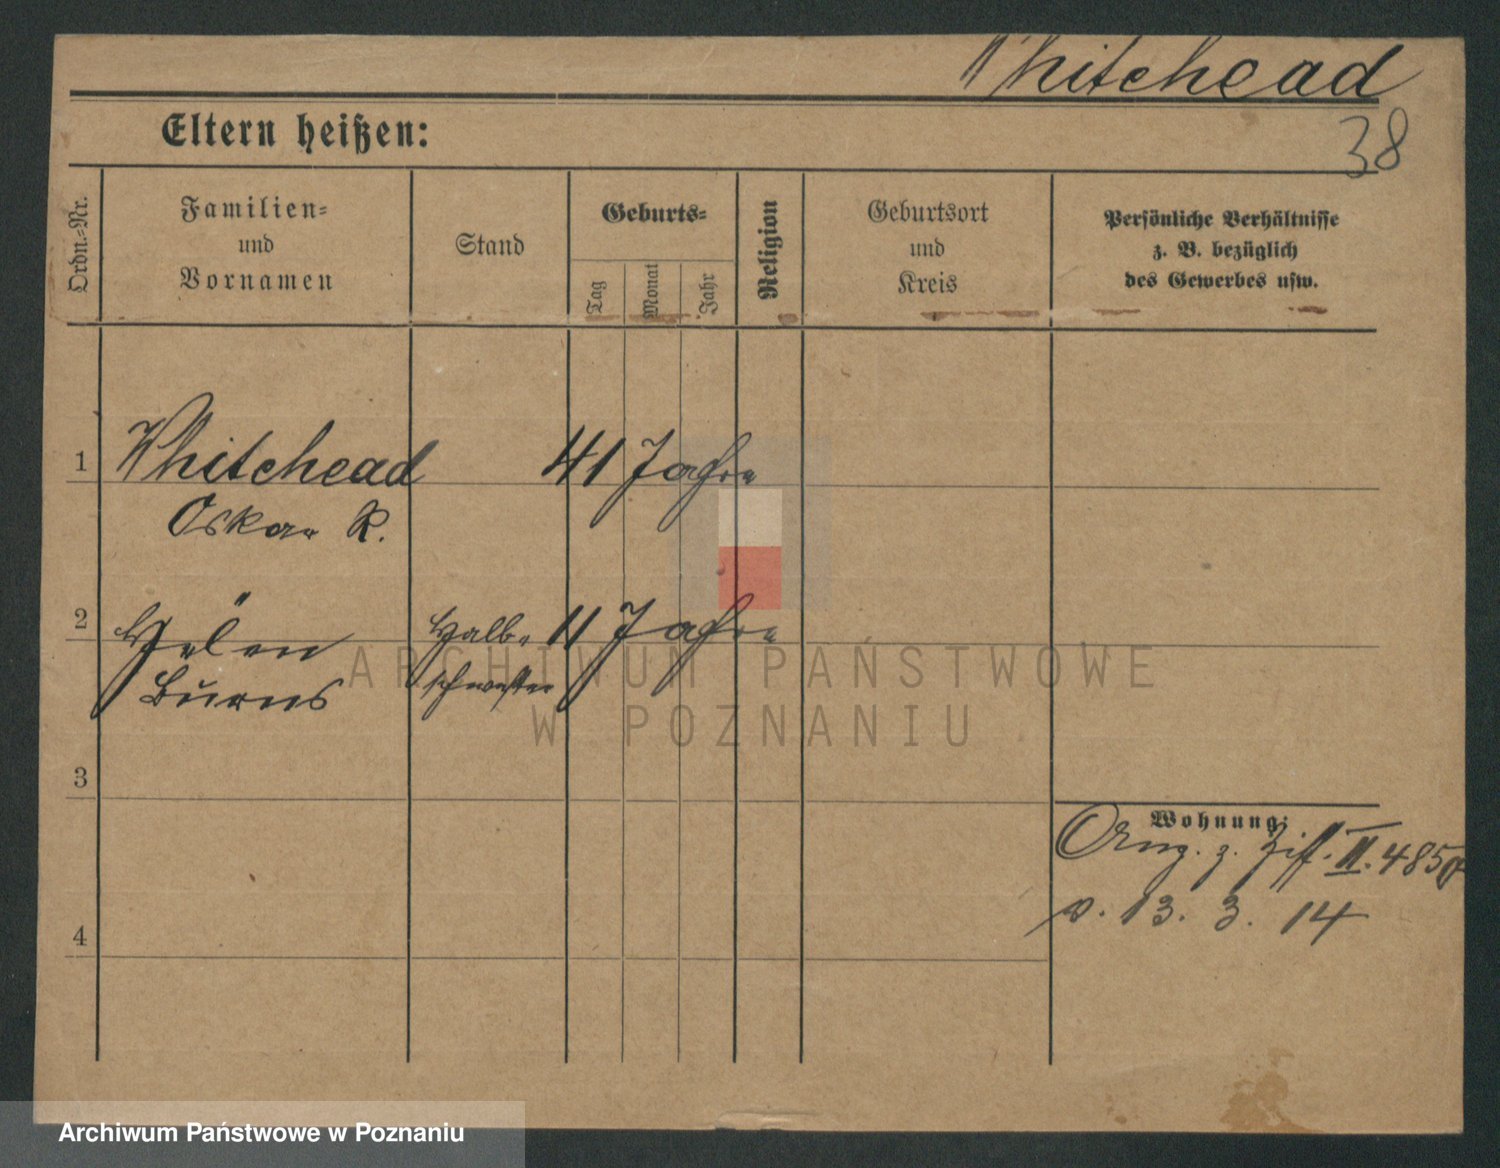 Whitehead
38
Eltern heißen:
Ordn.-Nr.
Familien-
und
Vornamen
Stand
Geburts-
Tag
Monat
Jahr
Religion
Geburtsort
und
Kreis
Persönliche Verhältnisse
z. B. bezüglich
des Gewerbes usw.
1 Whitehead 41 Jahre
Oskar R.
2 Helen Halb- 11 Jahre
Burns schwester
ARCHIWUM PAŃSTWOWE
W POZNANIU
3
Wohnung:
z. Ziff. II. 485
v. 13. 3. 14
4
Archiwum Państwowe w Poznaniu